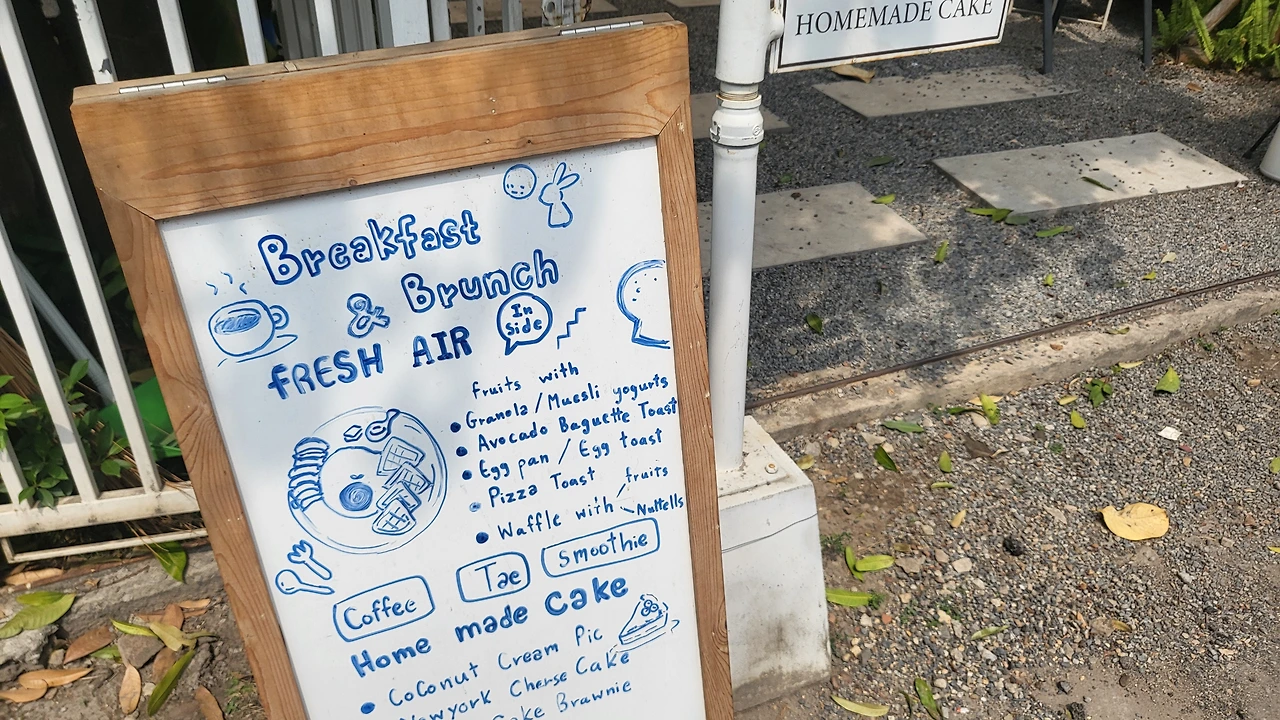 HOMEMADE CAKE
Breakfast
& Brunch
FRESH AIR
In
side
fruits with
Granola / Muesli yogurts
Avocado Baguette Toast
Egg pan / Egg toast
Pizza Toast
Waffle with fruits
Nuttells
Coffee Tae smoothie
Home made Cake
Coconut Cream Pic
Newyork Cherse Cake
Cake Brawnie